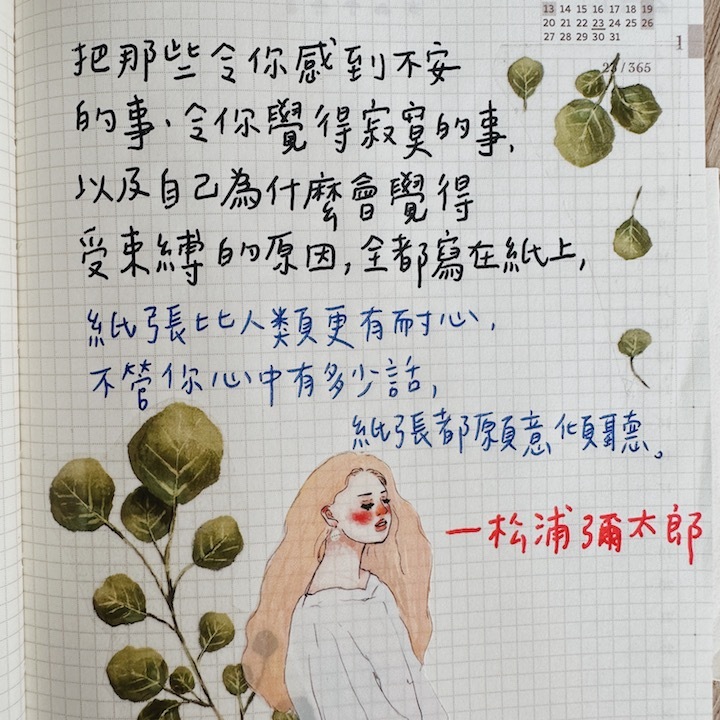 13 14 15 16 17 18 19
20 21 22 23 24 25 26
27 28 29 30 31
1
23/365
把那些令你感到不安
的事、令你覺得寂寞的事,
以及自己為什麼會覺得
受束縛的原因,全都寫在紙上,
紙張比人類更有耐心,
不管你心中有多少話,
紙張都願意傾聽。
—松浦彌太郎